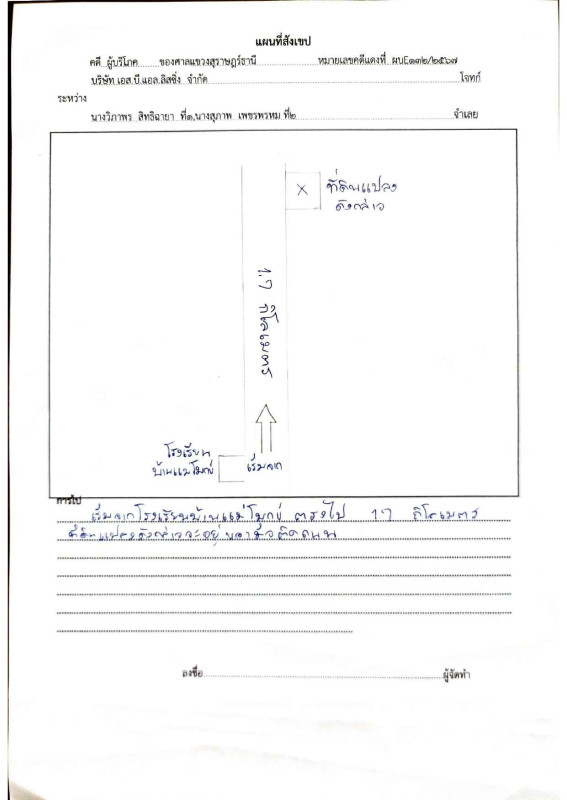 แผนที่สังเขป
คดี ผู้บริโภค ของศาลแขวงสุราษฎร์ธานี หมายเลขคดีแดงที่ ผบE๑๓๒/๒๕๖๗
บริษัท เอส.บี.แอล.ลิสซิ่ง จำกัด โจทก์
ระหว่าง
นางวิภาพร สิทธิฉายา ที่๑,นางสุภาพ เพชรพรหม ที่๒ จำเลย
X ที่ดินแปลง
ดังกล่าว
1.7 กิโลเมตร
โรงเรียน
บ้านแม่โมกข์ เริ่มจาก
การไป
เริ่มจากโรงเรียนบ้านแม่โมกข์ ตรงไป 1.7 กิโลเมตร
ที่ดินแปลงดังกล่าวจะอยู่ขวามือติดถนน
ลงชื่อ ผู้จัดทำ